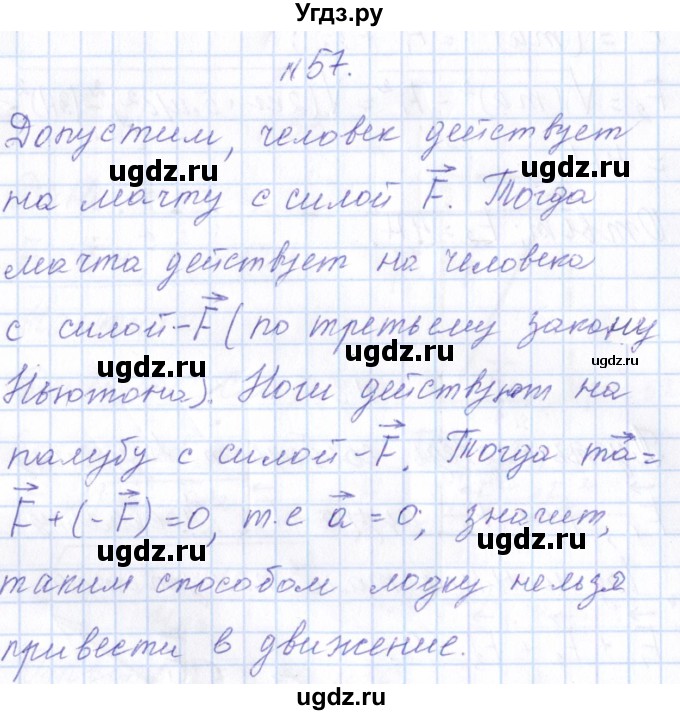 Угдз.ру
№57.
Допустим, человек действует
ugdz.ru ugdz.ru
на мачту с силой F⃗. Тогда
мачта действует на человека
с силой -F⃗ (по третьему закону
ugdz.ru ugdz.ru
Ньютона). Ноги действуют на
палубу с силой -F⃗. Тогда ma⃗=
ugdz.ru ugdz.ru
F⃗+(-F⃗)=0, т.е a⃗=0, значит,
ugdz.ru ugdz.ru
таким способом лодку нельзя
привести в движение.
ugdz.ru ugdz.ru
ugdz.ru